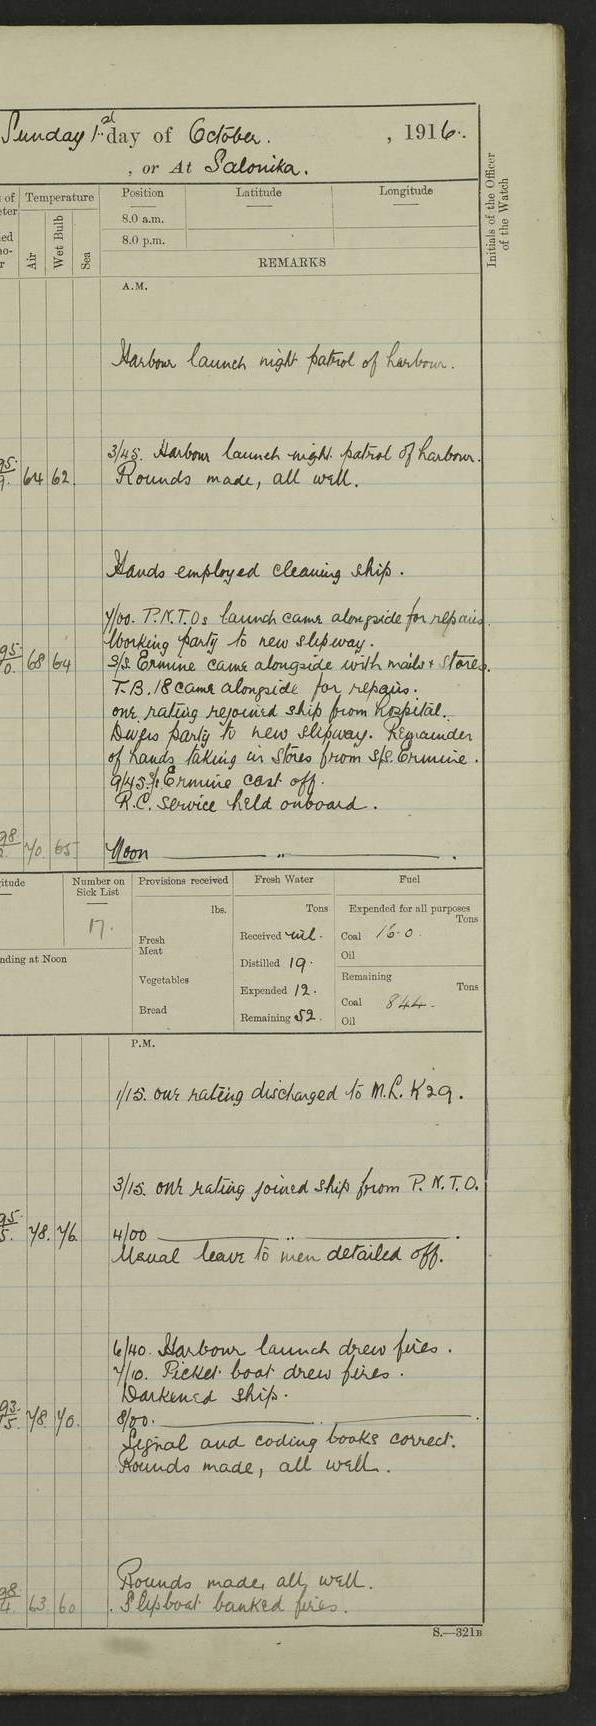 Sunday 1st day of October. , 1916.
, or At Salonika.
of Temperature Position Latitude Longitude
Air Wet Bulb Sea
8.0 a.m.
8.0 p.m.
Initials of the Officer
of the Watch
REMARKS
A.M.
Harbour launch night patrol of harbour.
3/45. Harbour launch night patrol of harbour.
64 62. Rounds made, all well.
Hands employed cleaning ship.
7/00. P.N.T.Os launch came alongside for repairs.
Working party to new slipway.
68 64 S/S. Ermine came alongside with mails & stores.
T.B. 18 came alongside for repairs.
one rating rejoined ship from hospital.
Divers party to new slipway. Remainder
of hands taking in stores from S/S. Ermine.
9/45. S/S Ermine cast off.
R.C. Service held onboard.
70 65 Noon ——— „ ——— .
Number on Sick List Provisions received Fresh Water Fuel
17.
lbs. Tons Expended for all purposes Tons
Fresh Meat Received nil. Coal 16.0.
Distilled 19. Oil
nding at Noon
Vegetables Expended 12. Remaining Tons
Coal 844.
Bread Remaining 52. Oil
P.M.
1/15. one rating discharged to M.L. K29.
3/15. one rating joined ship from P.N.T.O.
78. 76. 4/00 ——— „ ——— .
Usual leave to men detailed off.
6/40. Harbour launch drew fires.
7/10. Picket boat drew fires.
Darkened ship.
78. 70. 8/00. ——— . ——— .
Signal and coding books correct.
Rounds made, all well.
Rounds made, all well.
63 60 Slipboat banked fires.
S.—321B